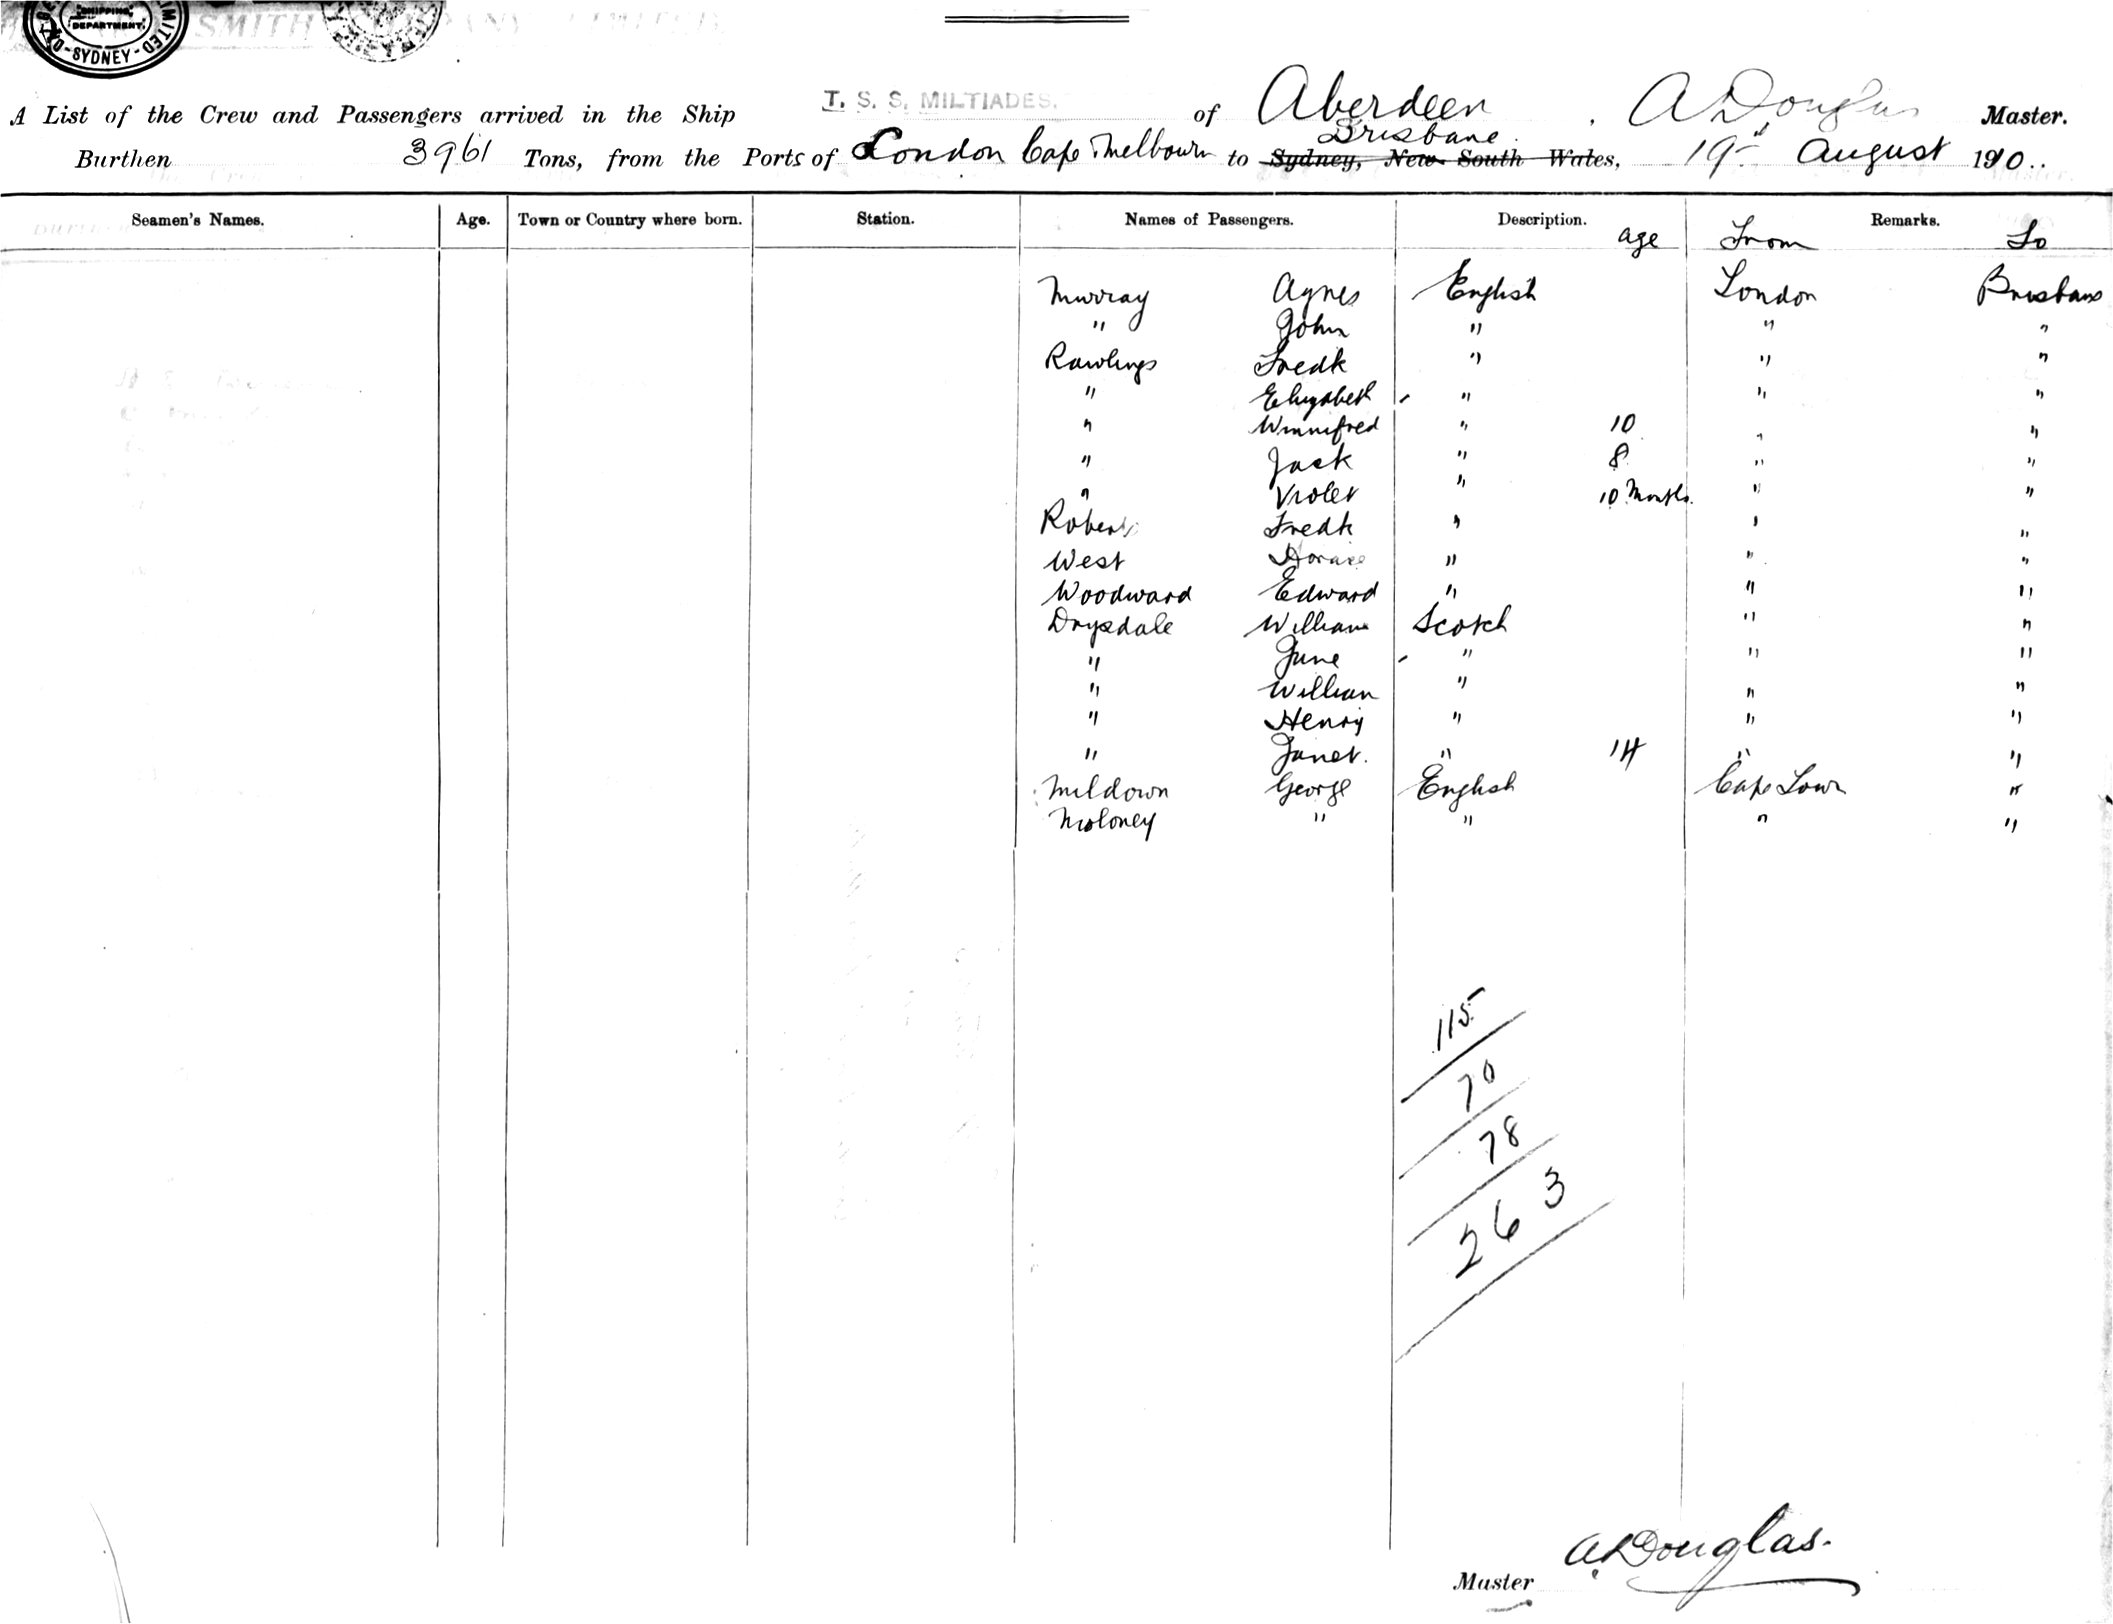 SHIPPING DEPARTMENT
LIMITED - SYDNEY -
SMITH
A List of the Crew and Passengers arrived in the Ship T. S. S. MILTIADES. of Aberdeen . A Douglas Master.
Burthen 3961 Tons, from the Ports of London Cape Melbourn to Sydney, New South Wales, Brisbane. 19th August 1910..
Seamen's Names. Age. Town or Country where born. Station. Names of Passengers. Description. age Remarks. From To
Murray Agnes English London Brisbane
" John " " "
Rawlings Fredk " " "
" Elizabeth " " "
" Winnifred " 10 " "
" Jack " 8 " "
" Violet " 10 Months. " "
Roberts Fredk " " "
West Horace " " "
Woodward Edward " " "
Drysdale William Scotch " "
" Jane " " "
" William " " "
" Henry " " "
" Janet. " 14 " "
Mildown George English Cape Town "
Moloney " " " "
115
70
78
263
Master A Douglas.